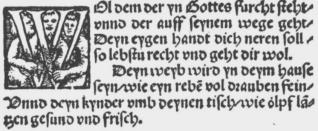 WOl dem der yn Gottes furcht steht
vnnd der auff seynem wege geht
Deyn eygen handt dich neren soll
so lebstu recht vnd geht dir wol.
Deyn weyb wird yn deym hause
seyn wie eyn rebē vol drauben fein
Vnnd deyn kynder vmb deynen tisch wie ölpflä
tzen gesund vnd frisch.